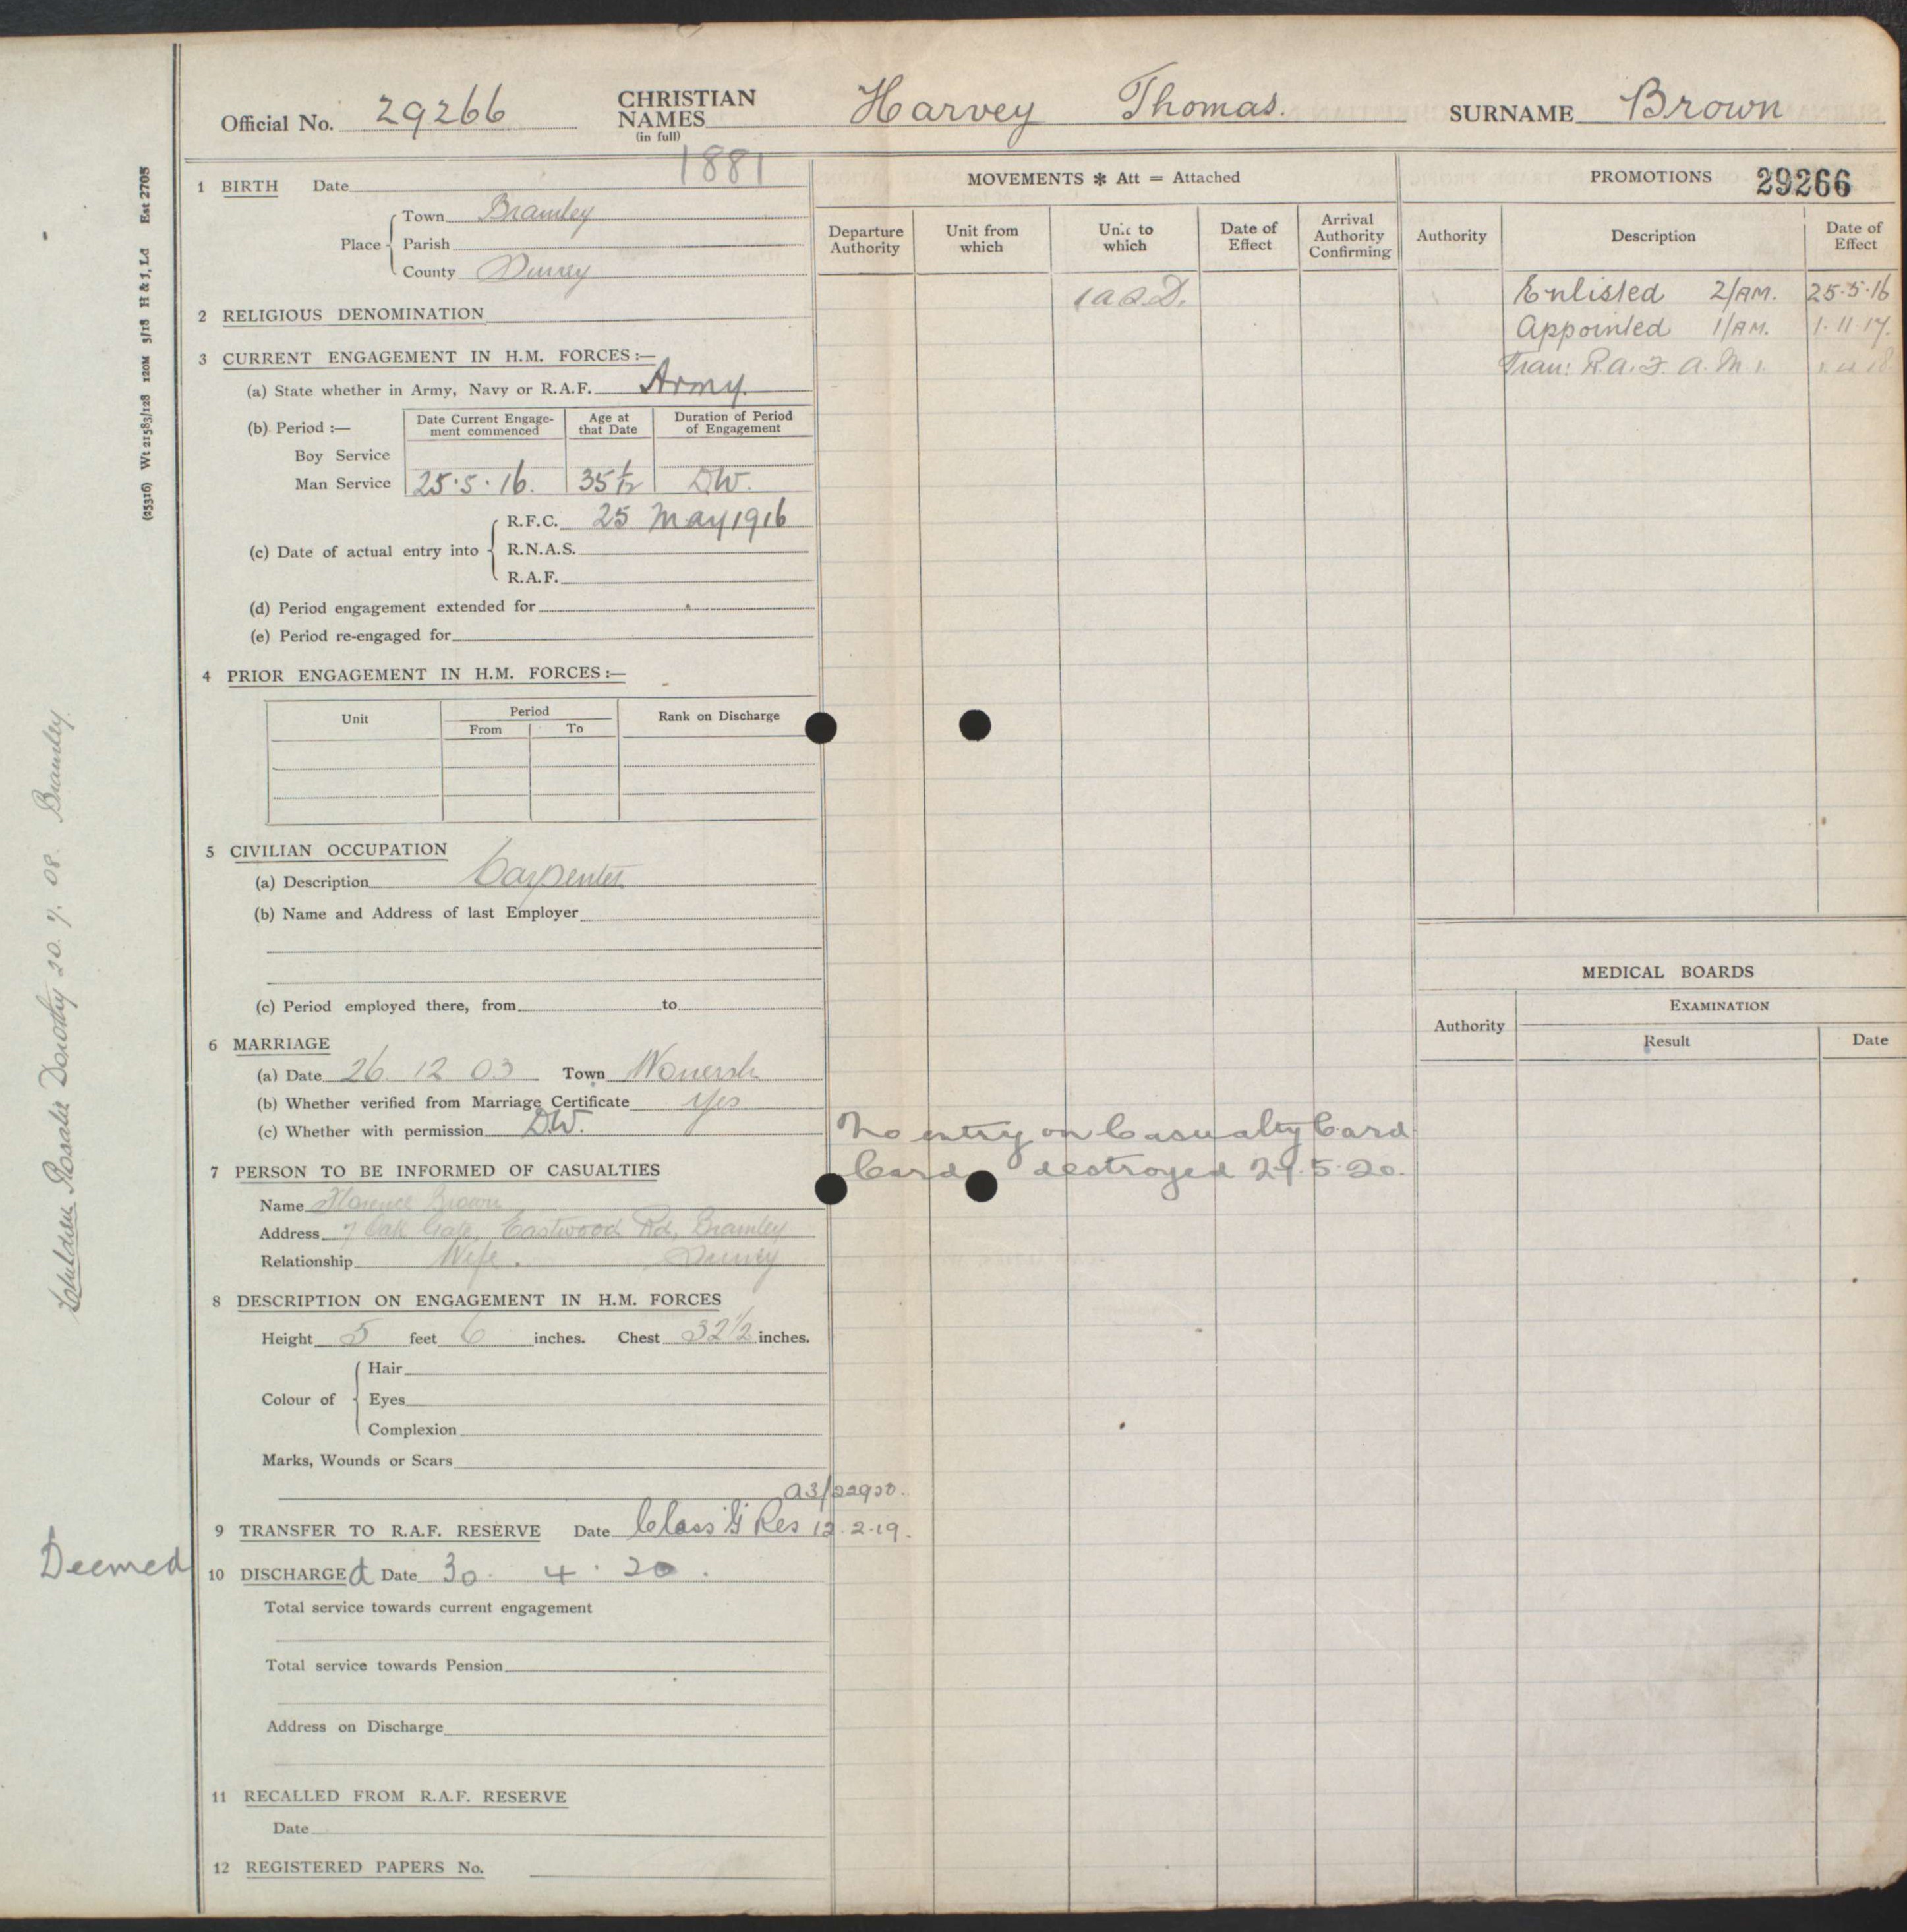 Official No. 29266 CHRISTIAN NAMES (in full) Harvey Thomas. SURNAME Brown
1 BIRTH Date 1881
Place Town Bramley
Parish
County Surrey
2 RELIGIOUS DENOMINATION
3 CURRENT ENGAGEMENT IN H.M. FORCES :—
(a) State whether in Army, Navy or R.A.F. Army.
(b) Period :— Date Current Engage-ment commenced Age at that Date Duration of Period of Engagement
Boy Service
Man Service 25.5.16. 35 1/12 D.W.
(c) Date of actual entry into R.F.C. 25 May 1916
R.N.A.S.
R.A.F.
(d) Period engagement extended for
(e) Period re-engaged for
4 PRIOR ENGAGEMENT IN H.M. FORCES :—
Unit Period Rank on Discharge
From To
5 CIVILIAN OCCUPATION
(a) Description Carpenter
(b) Name and Address of last Employer
(c) Period employed there, from to
6 MARRIAGE
(a) Date 26 12 03 Town Wonersh
(b) Whether verified from Marriage Certificate Yes
(c) Whether with permission D.W.
7 PERSON TO BE INFORMED OF CASUALTIES
Name Florence Brown
Address 7 Oak Eastwood Rd, Bramley
Relationship Wife. Surrey
8 DESCRIPTION ON ENGAGEMENT IN H.M. FORCES
Height 5 feet 6 inches. Chest 32 1/2 inches.
Colour of Hair
Eyes
Complexion
Marks, Wounds or Scars
9 TRANSFER TO R.A.F. RESERVE Date Class 'G' Res 12.2.19.
Deemed 10 DISCHARGEd Date 30. 4. 20.
Total service towards current engagement
Total service towards Pension
Address on Discharge
11 RECALLED FROM R.A.F. RESERVE
Date
12 REGISTERED PAPERS No.
MOVEMENTS * Att = Attached
Departure Authority Unit from which Unit to which Date of Effect Arrival Authority Confirming
No entry on Casualty Card
Card destroyed 29.5.20.
PROMOTIONS 29266
Authority Description Date of Effect
Enlisted 2/AM. 25.5.16
Appointed 1/AM. 1.11.17.
Tran: R.A.F. A.M 1. 1.4.18.
MEDICAL BOARDS
Authority EXAMINATION
Result Date
(25316) Wt 21583/128 120M 3/18 H & J, Ld Est 2705
Children Rosalie Dorothy 20.7.08. Bramley.